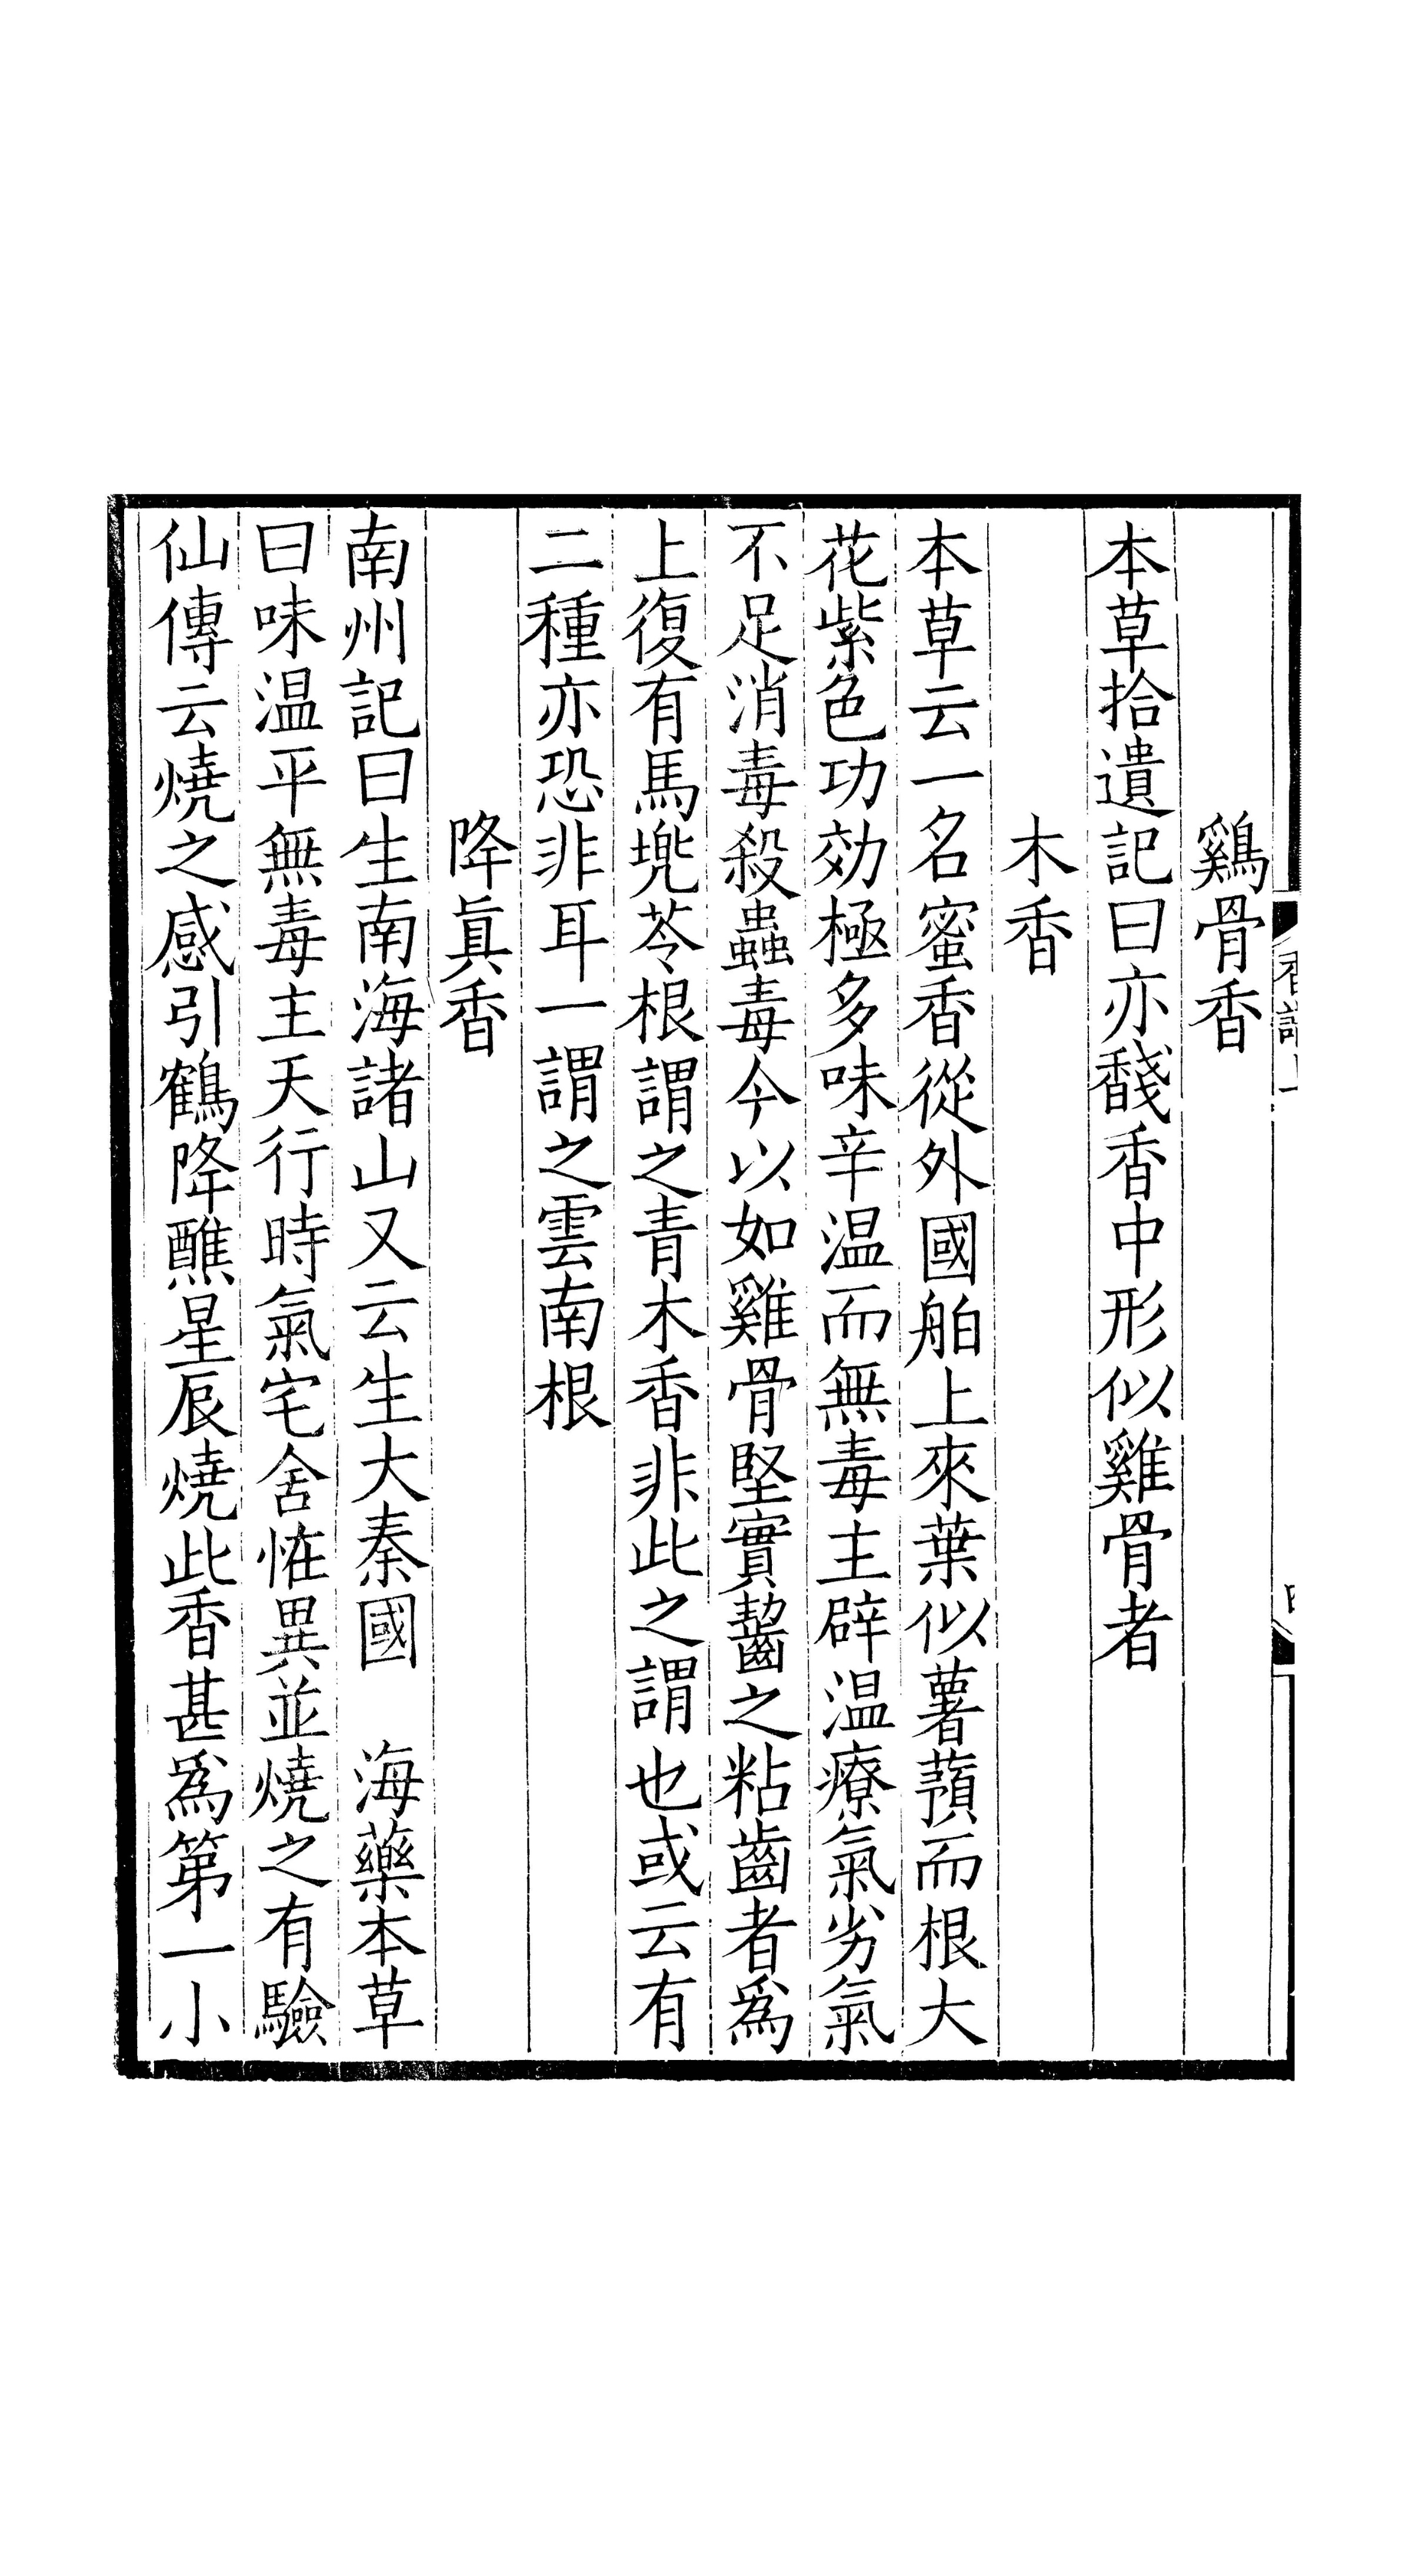 鷄骨香
本草拾遺記曰亦馢香中形似雞骨者
木香
本草云一名蜜香從外國舶上來葉似薯蕷而根大
花紫色功効極多味辛温而無毒主辟温療氣劣氣
不足消毒殺蟲毒今以如雞骨堅實齧之粘齒者爲
上復有馬兠苓根謂之青木香非此之謂也或云有
二種亦恐非耳一謂之雲南根
降眞香
南州記曰生南海諸山又云生大秦國　海藥本草
曰味温平無毒主天行時氣宅舍恠異並燒之有驗
仙傳云燒之感引鶴降醮星辰燒此香甚爲第一小